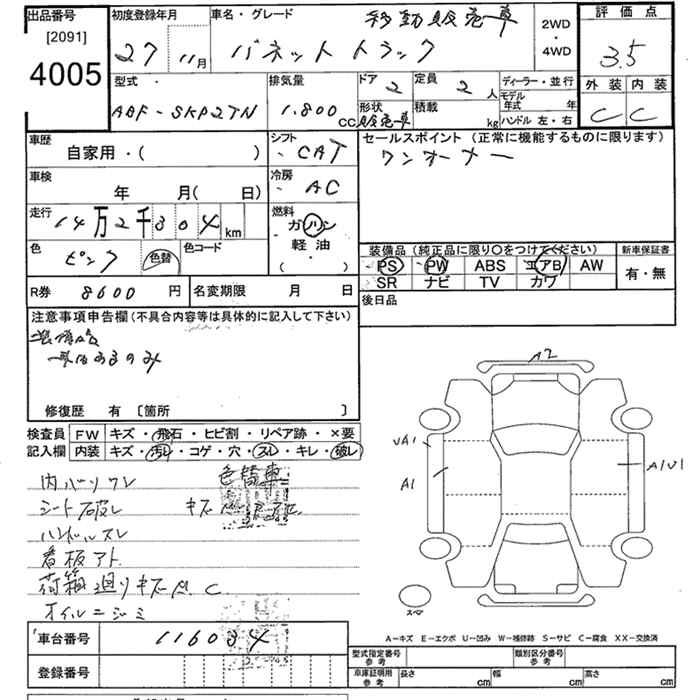 出品番号 初度登録年月 車名・グレード 移動販売車 2WD・4WD 評価点
[2091]
4005 27 11月 バネットトラック 3.5
型式 排気量 ドア 2 定員 2 人 ディーラー・並行 外装 内装
ABF-SKP2TN 1.800 CC 形状 販売車 積載 kg モデル年式 年 ハンドル 左・右 C C
車歴 自家用・( ) シフト CAT セールスポイント (正常に機能するものに限ります)
ワンオーナー
車検 年 月( 日) 冷房 AC
走行 14万2千804km 燃料 ガソリン 軽油 ( )
色 ピンク 色替 色コード
装備品 (純正品に限り○をつけてください) 新車保証書
PS PW ABS エアB AW 有・無
SR ナビ TV カワ
R券 8600 円 名変期限 月 日 後日品
注意事項申告欄(不具合内容等は具体的に記入して下さい)
現状あるのみ
修復歴 有 [箇所 ]
検査員 FW キズ・飛石・ヒビ割・リペア跡・×要
記入欄 内装 キズ・汚れ・コゲ・穴・スレ・キレ・破レ
内ハリワレ 色替車
シート破レ キズ
ハンドルスレ
看板アト
荷箱廻りキズ C
オイルニジミ
A2
UA1
A1
A1U1
スペア
A-キズ E-エクボ U-凹み W-補修跡 S-サビ C-腐食 XX-交換済
車台番号 116034
登録番号
型式指定番号 参考 類別区分番号 参考
車庫証明用 参考 長さ cm 幅 cm 高さ cm